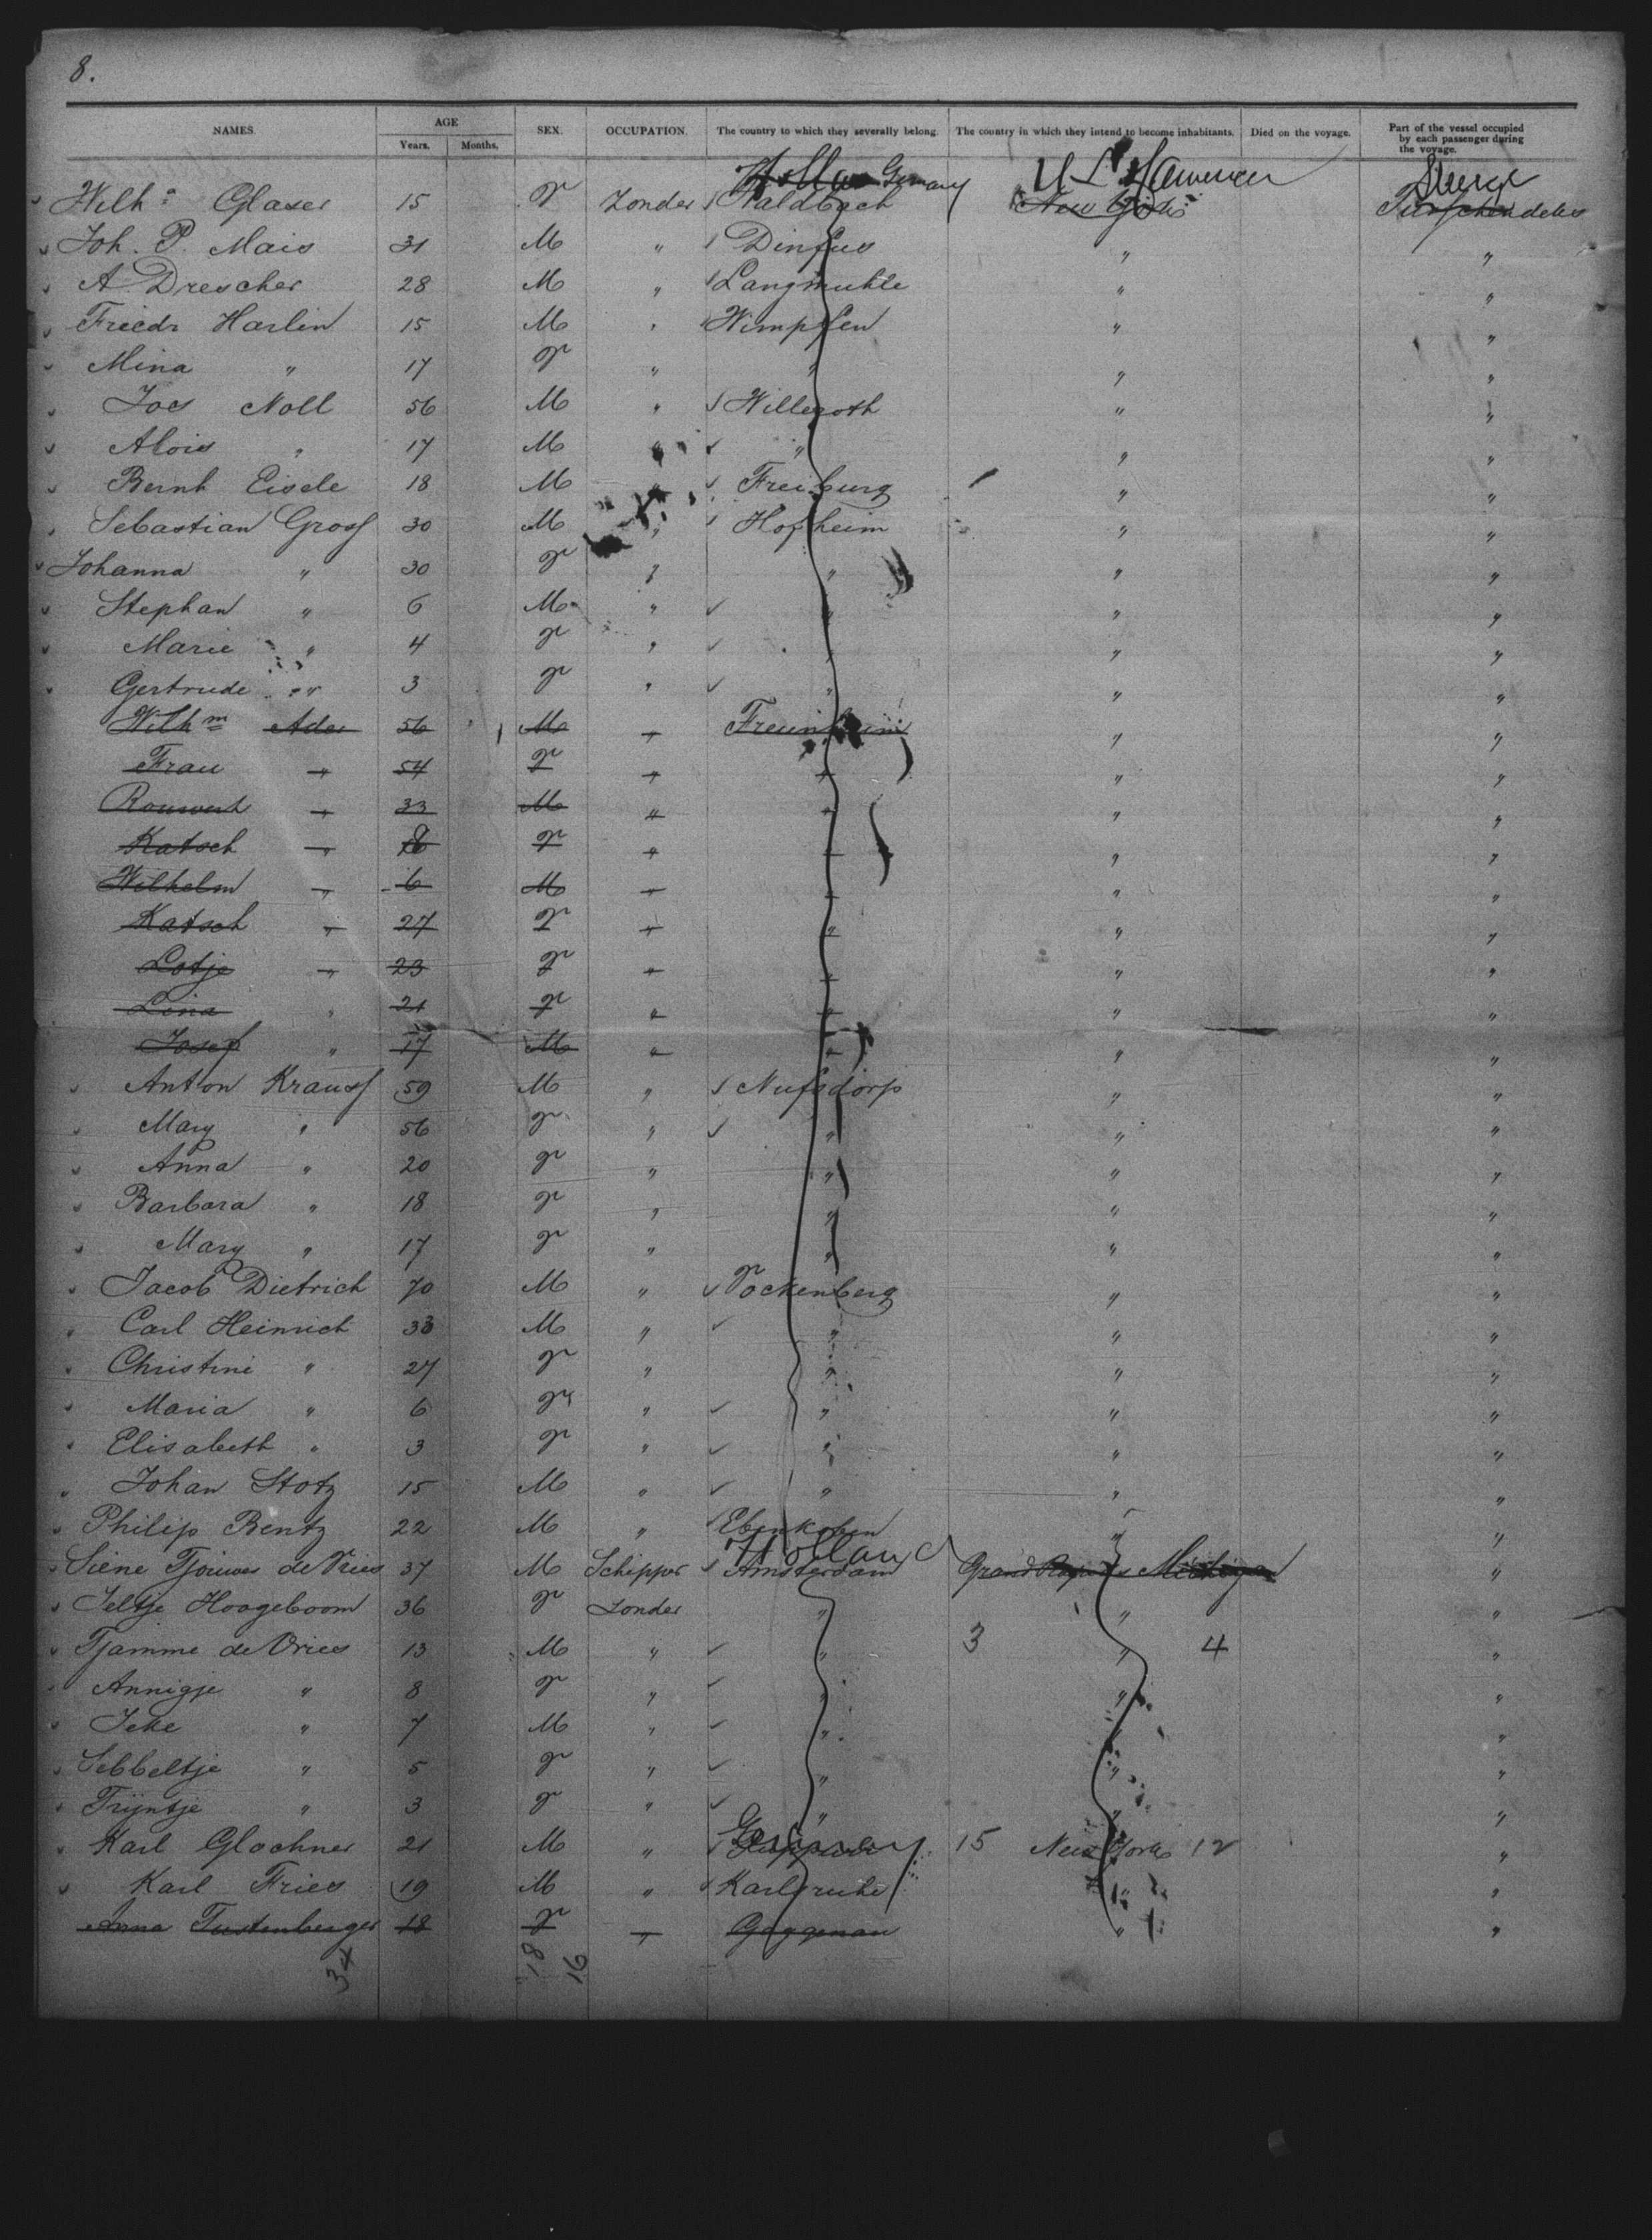 8.
NAMES. AGE SEX. OCCUPATION. The country to which they severally belong. The country in which they intend to become inhabitants. Died on the voyage. Part of the vessel occupied by each passenger during the voyage.
Years. Months.
Germany U S America
Wilha Glaser 15 F Zonder Waldbach New York Tusschendeks
Joh. P. Mais 31 M " "  "
A Drescher 28 M " Langmuhle " "
Friedr Harlin 15 M " Wimpfen " "
Mina " 17 F " " " "
Jos Noll 56 M " Willegoth " "
Alois " 17 M " " " "
Bernh Eisele 18 M " Freiburg " "
Sebastian Gross 30 M " Hofheim " "
Johanna " 30 F " " " "
Stephan " 6 M " " " "
Marie " 4 F " " " "
Gertrude " 3 F " " " "
Wilhm Ader 56 M " " "
Frau " 54 F " " " "
33 M " " " "
Katsch " F " " " "
Wilhelm " 6 M " " " "
Katsch " 27 F " " " "
Lotje " 23 F " " " "
Lina " 21 F " " " "
Josef " 17 M " " " "
Anton Krauss 59 M " Nufsdorp " "
Mary " 56 F " " " "
Anna " 20 F " " " "
Barbara " 18 F " " " "
Mary " 17 F " " " "
Jacob Dietrich 70 M " Fockenberg " "
Carl Heinrich 33 M " " " "
Christine " 27 F " " " "
Maria " 6 F " " " "
Elisabeth " 3 F " " " "
Johan Stotz 15 M " " " "
Philip Bentz 22 M " Ebenkoben " "
Holland
Siene Tjouwes de Vries 37 M Schipper Amsterdam Grand Rapids Michigan "
Jeltje Hoogeboom 36 F Zonder " " "
Tjamme de Vries 13 M " " 3 " 4 "
Annigje " 8 F " " " "
Jeke " 7 M " " " "
Sebbeltje " 5 F " " " "
Trijntje " 3 F " " " "
Germany
Karl Glochner 21 M " 15 New York 12 "
Karl Fries 19 M " Karlsruhe " "
Anna Tustenberger 18 F " Gaggenau " "
34 18 16